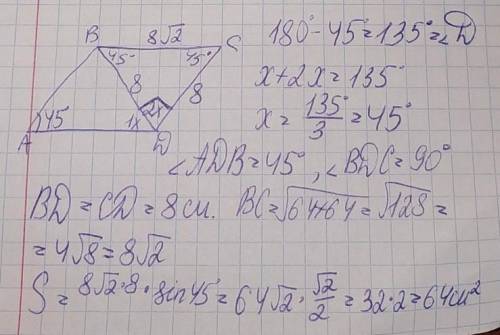 8√2
B C
45° 45°
8 8
1x 2x
45
A D
180° - 45° = 135° = ∠D
x + 2x = 135°
x = 135°/3 = 45°
∠ADB = 45°, ∠BDC = 90°
BD = CD = 8 см. BC = √64+64 = √128 =
= 4√8 = 8√2
S = 8√2 · 8 · sin45° = 64√2 · √2/2 = 32·2 = 64 см²